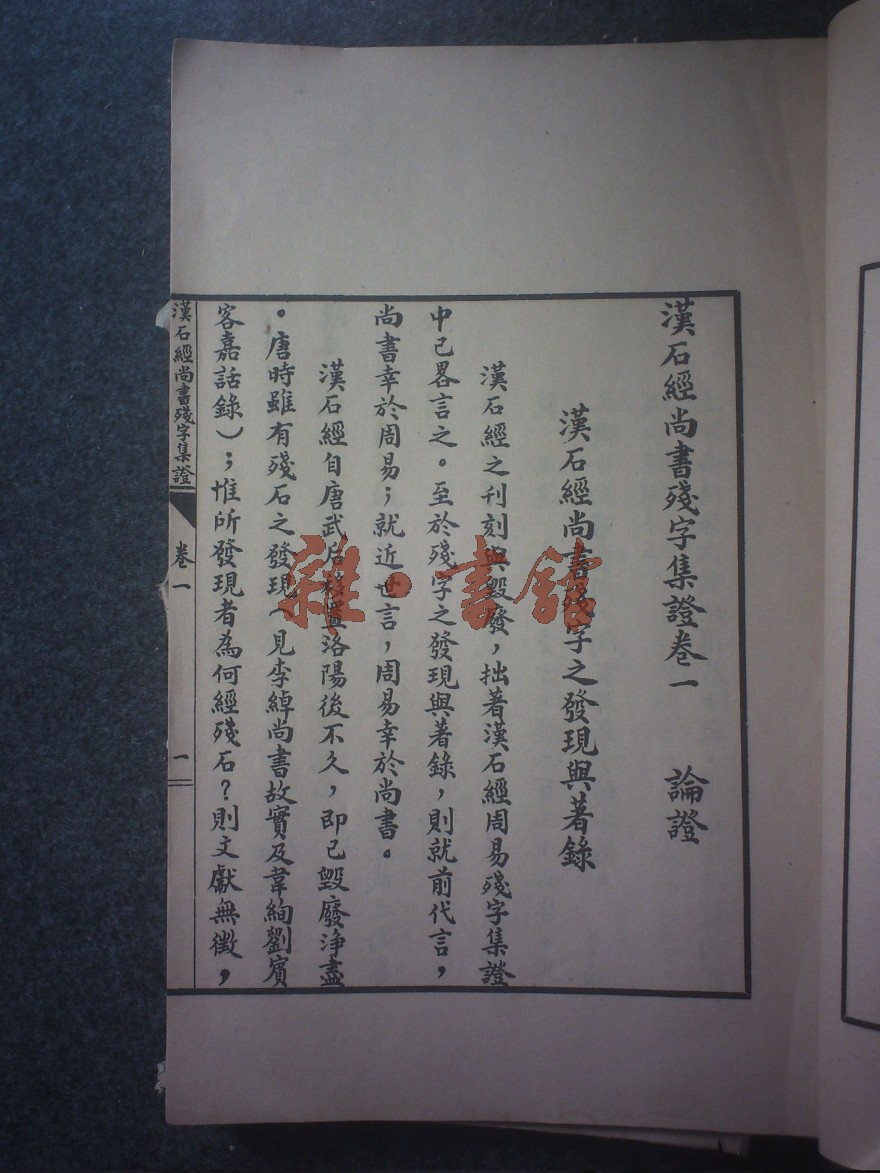 漢石經尚書殘字集證卷一　論證
漢石經尚書殘字之發現與著錄
漢石經之刊刻與毀廢，拙著漢石經周易殘字集證
中已畧言之。至於殘字之發現與著錄，則就前代言，
尚書幸於周易；就近世言，周易幸於尚書。
漢石經自唐武后移置洛陽後不久，即已毀廢淨盡
。唐時雖有殘石之發現（見李綽尚書故實及韋絢劉賓
客嘉話錄）；惟所發現者為何經殘石？則文獻無徵，
漢石經尚書殘字集證　卷一　一
雜·書館